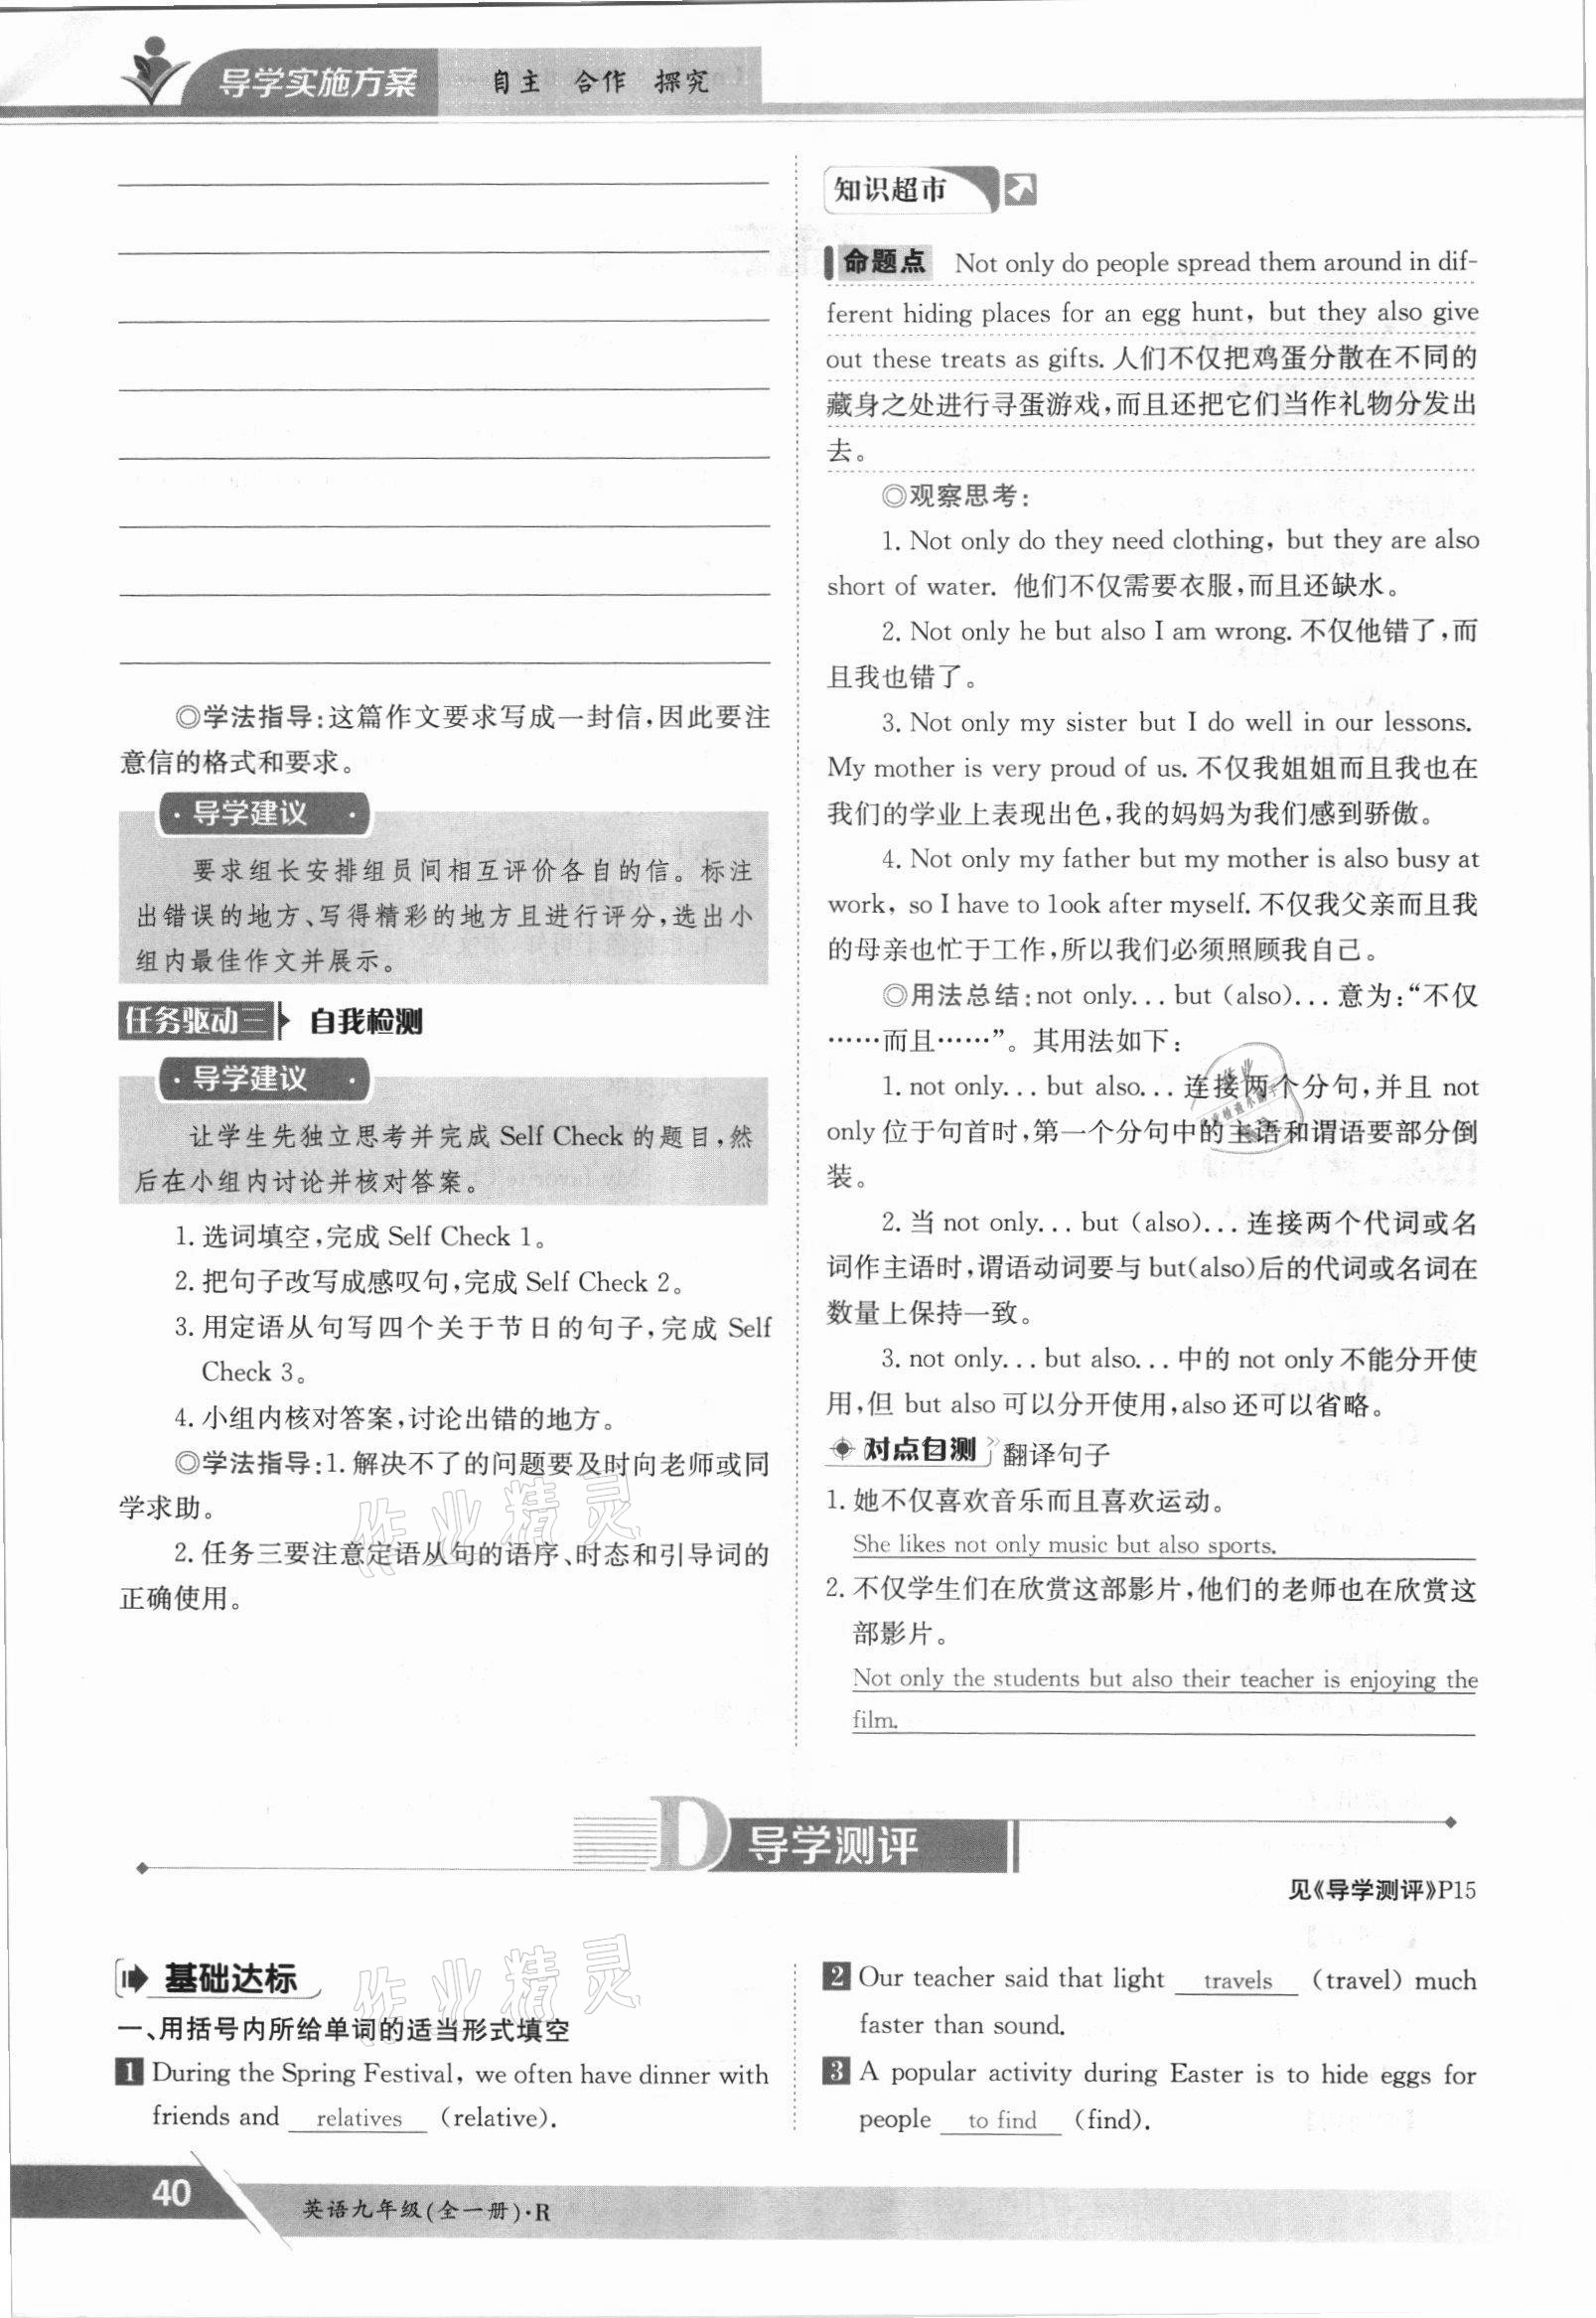 导学实施方案
自主 合作 探究
◎学法指导:这篇作文要求写成一封信,因此要注
意信的格式和要求。
·导学建议·
要求组长安排组员间相互评价各自的信。标注
出错误的地方、写得精彩的地方且进行评分,选出小
组内最佳作文并展示。
任务驱动三 自我检测
·导学建议·
让学生先独立思考并完成 Self Check 的题目,然
后在小组内讨论并核对答案。
1. 选词填空,完成 Self Check 1。
2. 把句子改写成感叹句,完成 Self Check 2。
3. 用定语从句写四个关于节日的句子,完成 Self
Check 3。
4. 小组内核对答案,讨论出错的地方。
◎学法指导:1. 解决不了的问题要及时向老师或同
学求助。
2. 任务三要注意定语从句的语序、时态和引导词的
正确使用。
知识超市
命题点 Not only do people spread them around in dif-
ferent hiding places for an egg hunt, but they also give
out these treats as gifts. 人们不仅把鸡蛋分散在不同的
藏身之处进行寻蛋游戏,而且还把它们当作礼物分发出
去。
◎观察思考:
1. Not only do they need clothing, but they are also
short of water. 他们不仅需要衣服,而且还缺水。
2. Not only he but also I am wrong. 不仅他错了,而
且我也错了。
3. Not only my sister but I do well in our lessons.
My mother is very proud of us. 不仅我姐姐而且我也在
我们的学业上表现出色,我的妈妈为我们感到骄傲。
4. Not only my father but my mother is also busy at
work, so I have to look after myself. 不仅我父亲而且我
的母亲也忙于工作,所以我们必须照顾我自己。
◎用法总结:not only... but (also)... 意为:“不仅
……而且……”。其用法如下:
1. not only... but also... 连接两个分句,并且 not
only 位于句首时,第一个分句中的主语和谓语要部分倒
装。
2. 当 not only... but (also)... 连接两个代词或名
词作主语时,谓语动词要与 but(also)后的代词或名词在
数量上保持一致。
3. not only... but also... 中的 not only 不能分开使
用,但 but also 可以分开使用,also 还可以省略。
对点自测 翻译句子
1. 她不仅喜欢音乐而且喜欢运动。
She likes not only music but also sports.
2. 不仅学生们在欣赏这部影片,他们的老师也在欣赏这
部影片。
Not only the students but also their teacher is enjoying the
film.
D 导学测评
见《导学测评》P15
基础达标
一、用括号内所给单词的适当形式填空
1 During the Spring Festival, we often have dinner with
friends and relatives (relative).
2 Our teacher said that light travels (travel) much
faster than sound.
3 A popular activity during Easter is to hide eggs for
people to find (find).
作业精灵
作业精灵
40
英语九年级(全一册)·R